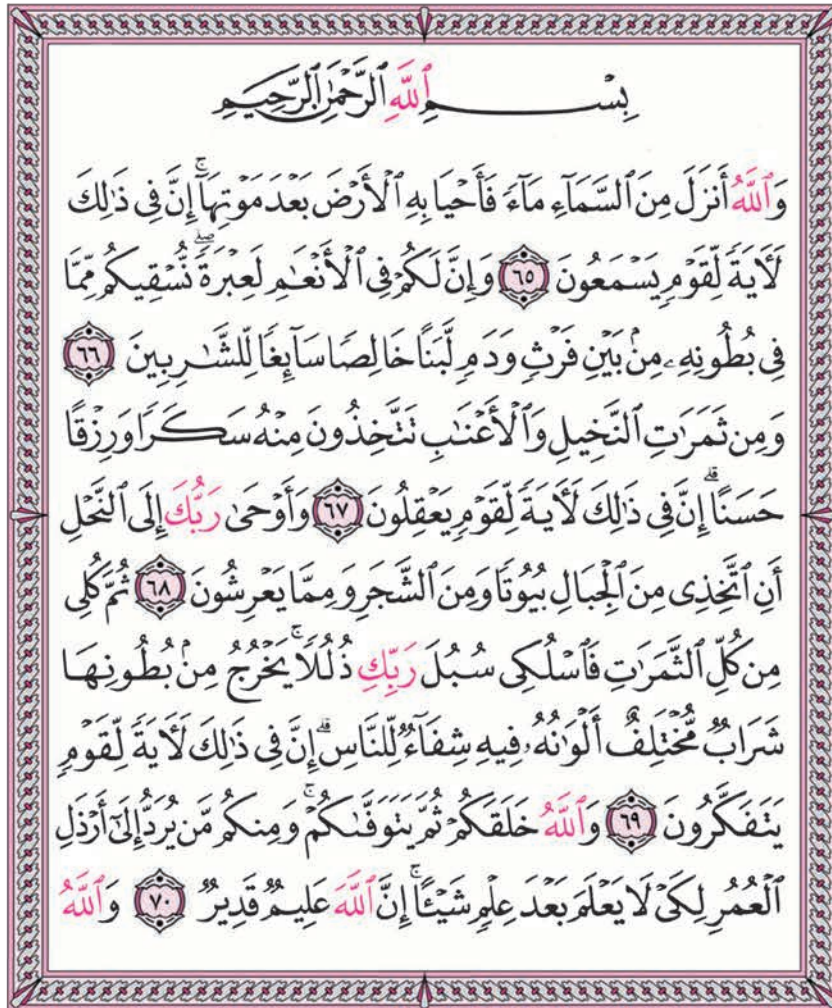 بِسْمِ ٱللَّهِ ٱلرَّحْمَٰنِ ٱلرَّحِيمِ
وَٱللَّهُ أَنزَلَ مِنَ ٱلسَّمَآءِ مَآءً فَأَحْيَا بِهِ ٱلْأَرْضَ بَعْدَ مَوْتِهَآۚ إِنَّ فِى ذَٰلِكَ
لَأٓيَةً لِّقَوْمٍ يَسْمَعُونَ ٦٥ وَإِنَّ لَكُمْ فِى ٱلْأَنْعَٰمِ لَعِبْرَةًۖ نُّسْقِيكُم مِّمَّا
فِى بُطُونِهِۦ مِنۢ بَيْنِ فَرْثٍ وَدَمٍ لَّبَنًا خَالِصًا سَآئِغًا لِّلشَّٰرِبِينَ ٦٦
وَمِن ثَمَرَٰتِ ٱلنَّخِيلِ وَٱلْأَعْنَٰبِ تَتَّخِذُونَ مِنْهُ سَكَرًا وَرِزْقًا
حَسَنًاۗ إِنَّ فِى ذَٰلِكَ لَأٓيَةً لِّقَوْمٍ يَعْقِلُونَ ٦٧ وَأَوْحَىٰ رَبُّكَ إِلَى ٱلنَّحْلِ
أَنِ ٱتَّخِذِى مِنَ ٱلْجِبَالِ بُيُوتًا وَمِنَ ٱلشَّجَرِ وَمِمَّا يَعْرِشُونَ ٦٨ ثُمَّ كُلِى
مِن كُلِّ ٱلثَّمَرَٰتِ فَٱسْلُكِى سُبُلَ رَبِّكِ ذُلُلًاۚ يَخْرُجُ مِنۢ بُطُونِهَا
شَرَابٌ مُّخْتَلِفٌ أَلْوَٰنُهُۥ فِيهِ شِفَآءٌ لِّلنَّاسِۗ إِنَّ فِى ذَٰلِكَ لَأٓيَةً لِّقَوْمٍ
يَتَفَكَّرُونَ ٦٩ وَٱللَّهُ خَلَقَكُمْ ثُمَّ يَتَوَفَّىٰكُمْۚ وَمِنكُم مَّن يُرَدُّ إِلَىٰٓ أَرْذَلِ
ٱلْعُمُرِ لِكَىْ لَا يَعْلَمَ بَعْدَ عِلْمٍ شَيْـًٔاۚ إِنَّ ٱللَّهَ عَلِيمٌ قَدِيرٌ ٧٠ وَٱللَّهُ